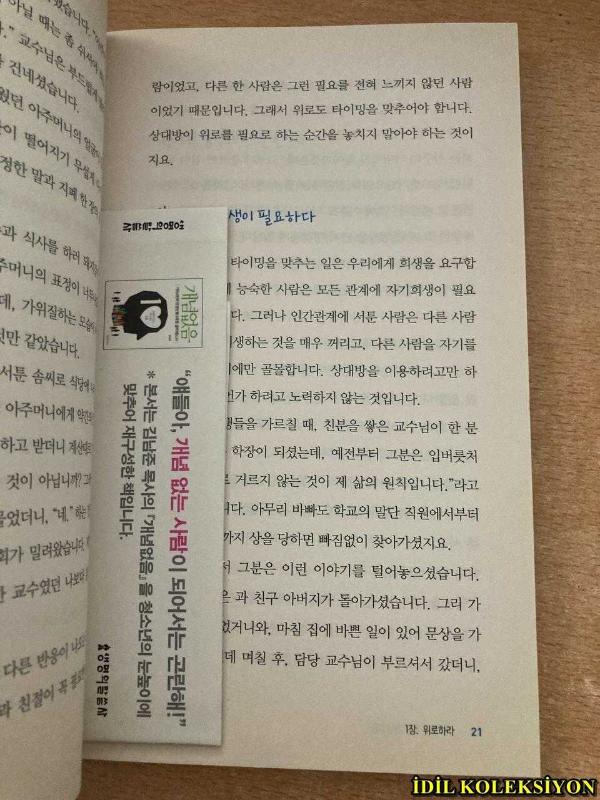 아닐 때는 좀 쉬셔
교수님은 부드럽게
건네셨습니다.
웠던 아주머니의 얼굴
이 떨어지기 무섭게
정한 말과 지폐 한 장
과 식사를 하러 돼지
주머니의 표정이 너무
데, 가위질하는 모습
것만 같았습니다.
서툰 솜씨로 식당에
아주머니에게 약간의
하고 받더니 계산대
것이 아닙니까?
물었더니, “네.” 하는
회가 밀려왔습니다
교수였던 나보다
다른 반응이 나오
과 친절이 꼭 필요
람이었고, 다른 한 사람은 그런 필요를 전혀 느끼지 않던 사람
이었기 때문입니다. 그래서 위로도 타이밍을 맞추어야 합니다.
상대방이 위로를 필요로 하는 순간을 놓치지 말아야 하는 것이
지요.
생이 필요하다
타이밍을 맞추는 일은 우리에게 희생을 요구합
에 능숙한 사람은 모든 관계에 자기희생이 필요
그러나 인간관계에 서툰 사람은 다른 사람
생하는 것을 매우 꺼리고, 다른 사람을 자기를
에만 골몰합니다. 상대방을 이용하려고만 하
언가 하려고 노력하지 않는 것입니다.
생들을 가르칠 때, 친분을 쌓은 교수님이 한 분
학장이 되셨는데, 예전부터 그분은 입버릇처
로 거르지 않는 것이 제 삶의 원칙입니다.”라고
니다. 아무리 바빠도 학교의 말단 직원에서부터
까지 상을 당하면 빠짐없이 찾아가셨지요.
서 그분은 이런 이야기를 털어놓으셨습니다.
은 과 친구 아버지가 돌아가셨습니다. 그리 가
었거니와, 마침 집에 바쁜 일이 있어 문상을 가
데 며칠 후, 담당 교수님이 부르셔서 갔더니,
1장. 위로하라 21
생명의말씀사
개념없음
“얘들아, 개념 없는 사람이 되어서는 곤란해!”
* 본서는 김남준 목사의 『개념없음』을 청소년의 눈높이에
맞추어 재구성한 책입니다.
생명의말씀사
İDİL KOLEKSİYON